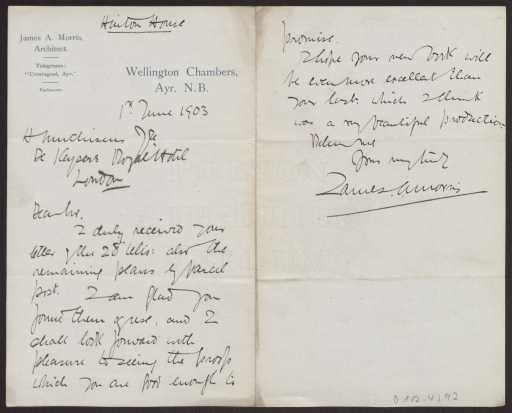 Hinton House
James A. Morris,
Architect.
Telegrams:
Wellington Chambers,
Ayr. N.B.
1st June 1903
H Muthesius Esq
De Keysers Royal Hotel
London
Dear Sir.
I duly received your
letter of the 28th ulto: also the
remaining plans by parcel
post. I am glad you
found them of use, and I
shall look forward with
pleasure to seeing the proofs
which you are good enough to
promise.
I hope your new book will
be even more excellent than
your last. which I think
was a very beautiful production.
Believe me
Yours very truly
James. A Morris